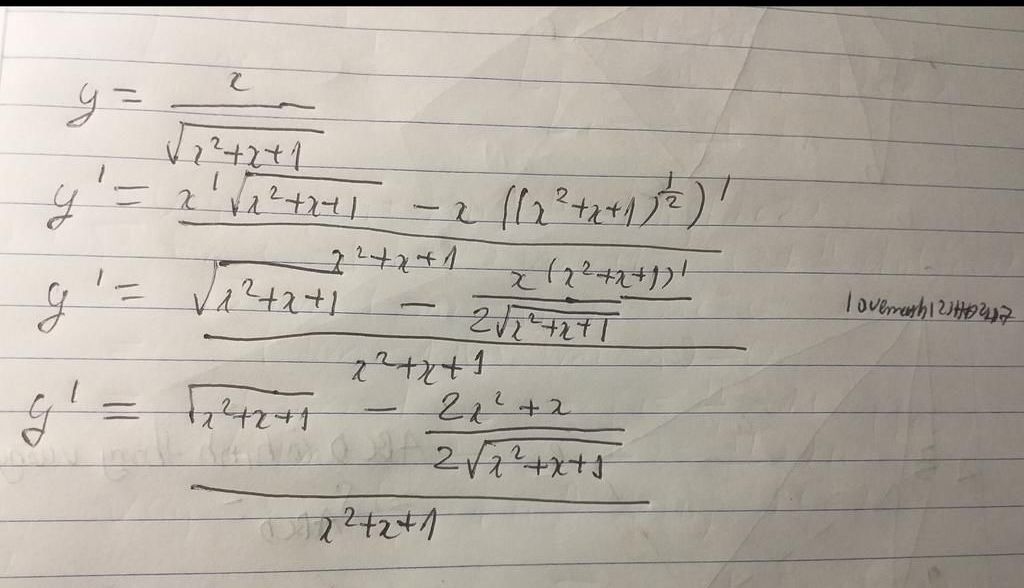 y = x / √(x²+x+1)
y' = (x' √(x²+x+1) - x ((x²+x+1)^(1/2))') / (x²+x+1)
y' = (√(x²+x+1) - x(x²+x+1)' / (2√(x²+x+1))) / (x²+x+1)
y' = (√(x²+x+1) - (2x²+x) / (2√(x²+x+1))) / (x²+x+1)